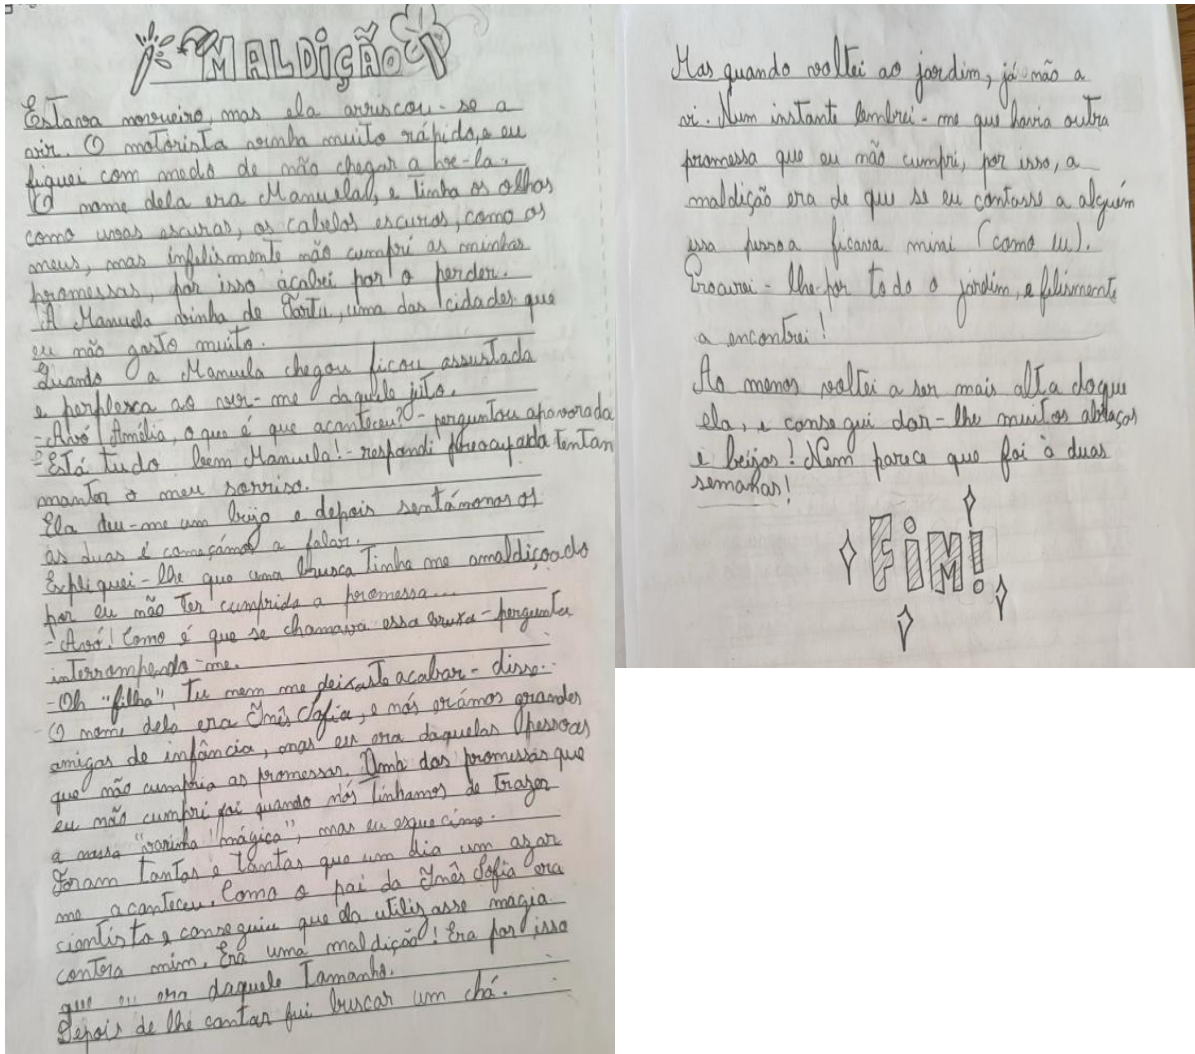 A MALDIÇÃO
Estava nevoeiro, mas ela arriscou-se a
vir. O motorista vinha muito rápido, e eu
fiquei com medo de não chegar a ve-la.
O nome dela era Manuela, e tinha os olhos
como uvas escuras, os cabelos escuros, como os
meus, mas infelismente não cumpri as minhas
promessas, por isso acabei por o perder.
A Manuela vinha de Tartu, uma das cidades que
eu não gosto muito.
Quando a Manuela chegou ficou assustada
e perplexa ao ver-me daquele jito.
- Avó Amélia, o que é que aconteceu? - perguntou apavorada
- Está tudo bem Manuela! - respondi preocupada tentan
manter o meu sorriso.
Ela deu-me um beijo e depois sentámonos os
às duas e começámos a falar.
Expliquei-lhe que uma bruxa tinha me amaldiçoado
por eu não ter cumprido a promessa...
- Avó! Como é que se chamava essa bruxa - pergunta
interrompendo-me.
- Oh "filha", tu nem me deixaste acabar - disse.
O nome dela era Inês Sofia, e nós erámos grandes
amigas de infância, mas eu era daquelas pessoas
que não cumpria as promessas. Uma das promessas que
eu não cumpri foi quando nós tinhamos de trazer
a nossa "varinha mágica", mas eu esquecime.
Foram tantas e tantas que um dia um azar
me aconteceu. Como o pai da Inês Sofia era
cientista e conseguiu que ela utilizasse magia
contra mim. Era uma maldição! Era por isso
que eu era daquele tamanho.
Depois de lhe contar fui buscar um chá.
Mas quando voltei ao jardim, já não a
vi. Num instante lembrei-me que havia outra
promessa que eu não cumpri, por isso, a
maldição era de que se eu contasse a alguém
essa pessoa ficava mini (como eu).
Procurei-lhe por todo o jardim, e felismente
a encontrei!
Ao menos voltei a ser mais alta doque
ela, e consegui dar-lhe muitos abraços
e beijos! Nem parece que foi à duas
semanas!
FIM!